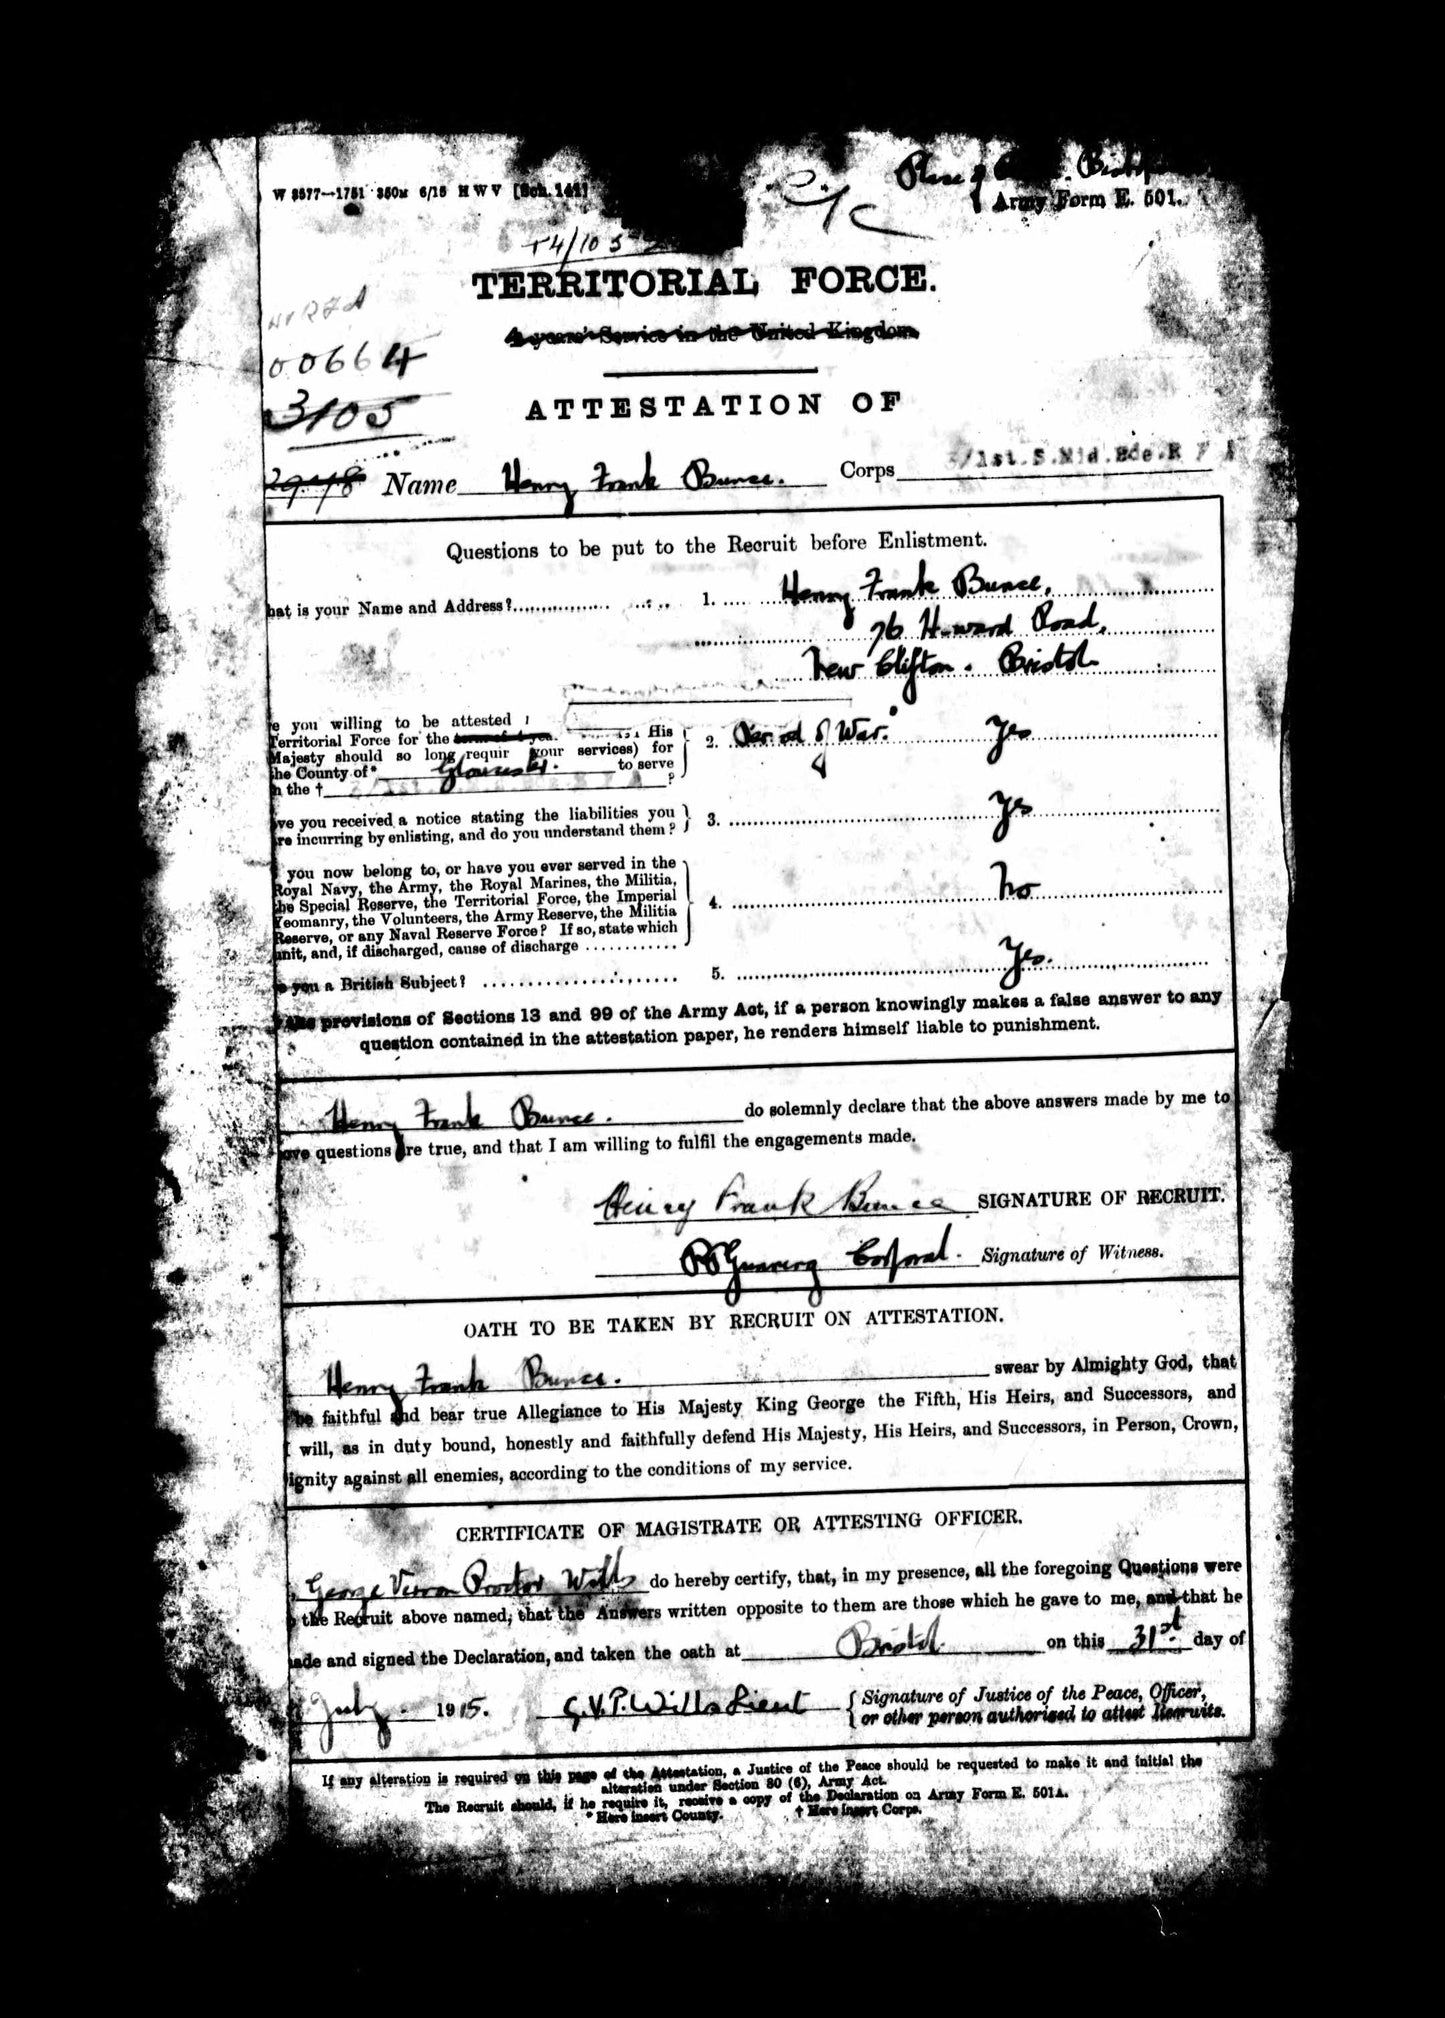 W 8577—1751 350M 6/15 H W V [Sch. 141]
Army Form E. 501.
T4/105
TERRITORIAL FORCE.
4 years' Service in the United Kingdom.
00664
3105
ATTESTATION OF
Name Henry Frank Bunce. Corps 3/1st. S. Mid. Bde. R F A
Questions to be put to the Recruit before Enlistment.
hat is your Name and Address? 1. Henry Frank Bunce,
76 Howard Road,
New Clifton. Bristol
e you willing to be attested
Territorial Force for the His
Majesty should so long requir your services) for
he County of* Gloucester. to serve
n the † ?
2. Period of War. Yes
ve you received a notice stating the liabilities you
re incurring by enlisting, and do you understand them?
3. Yes
you now belong to, or have you ever served in the
Royal Navy, the Army, the Royal Marines, the Militia,
the Special Reserve, the Territorial Force, the Imperial
Yeomanry, the Volunteers, the Army Reserve, the Militia
Reserve, or any Naval Reserve Force? If so, state which
unit, and, if discharged, cause of discharge
4. No
you a British Subject? 5. Yes.
the provisions of Sections 13 and 99 of the Army Act, if a person knowingly makes a false answer to any
question contained in the attestation paper, he renders himself liable to punishment.
Henry Frank Bunce. do solemnly declare that the above answers made by me to
ove questions are true, and that I am willing to fulfil the engagements made.
Henry Frank Bunce SIGNATURE OF RECRUIT.
Corporal. Signature of Witness.
OATH TO BE TAKEN BY RECRUIT ON ATTESTATION.
Henry Frank Bunce. swear by Almighty God, that
be faithful and bear true Allegiance to His Majesty King George the Fifth, His Heirs, and Successors, and
I will, as in duty bound, honestly and faithfully defend His Majesty, His Heirs, and Successors, in Person, Crown,
ignity against all enemies, according to the conditions of my service.
CERTIFICATE OF MAGISTRATE OR ATTESTING OFFICER.
George Vernon Proctor Wills do hereby certify, that, in my presence, all the foregoing Questions were
the Recruit above named, that the Answers written opposite to them are those which he gave to me, and that he
ade and signed the Declaration, and taken the oath at Bristol. on this 31st day of
July. 1915. G.V.P. Wills Lieut { Signature of Justice of the Peace, Officer,
or other person authorised to attest Recruits.
If any alteration is required on this page of the Attestation, a Justice of the Peace should be requested to make it and initial the
alteration under Section 80 (6), Army Act.
The Recruit should, if he require it, receive a copy of the Declaration on Army Form E. 501A.
* Here insert County. † Here insert Corps.